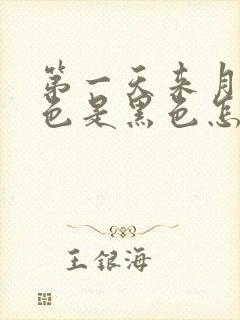 第一天来月
色是黑色怎
王银海